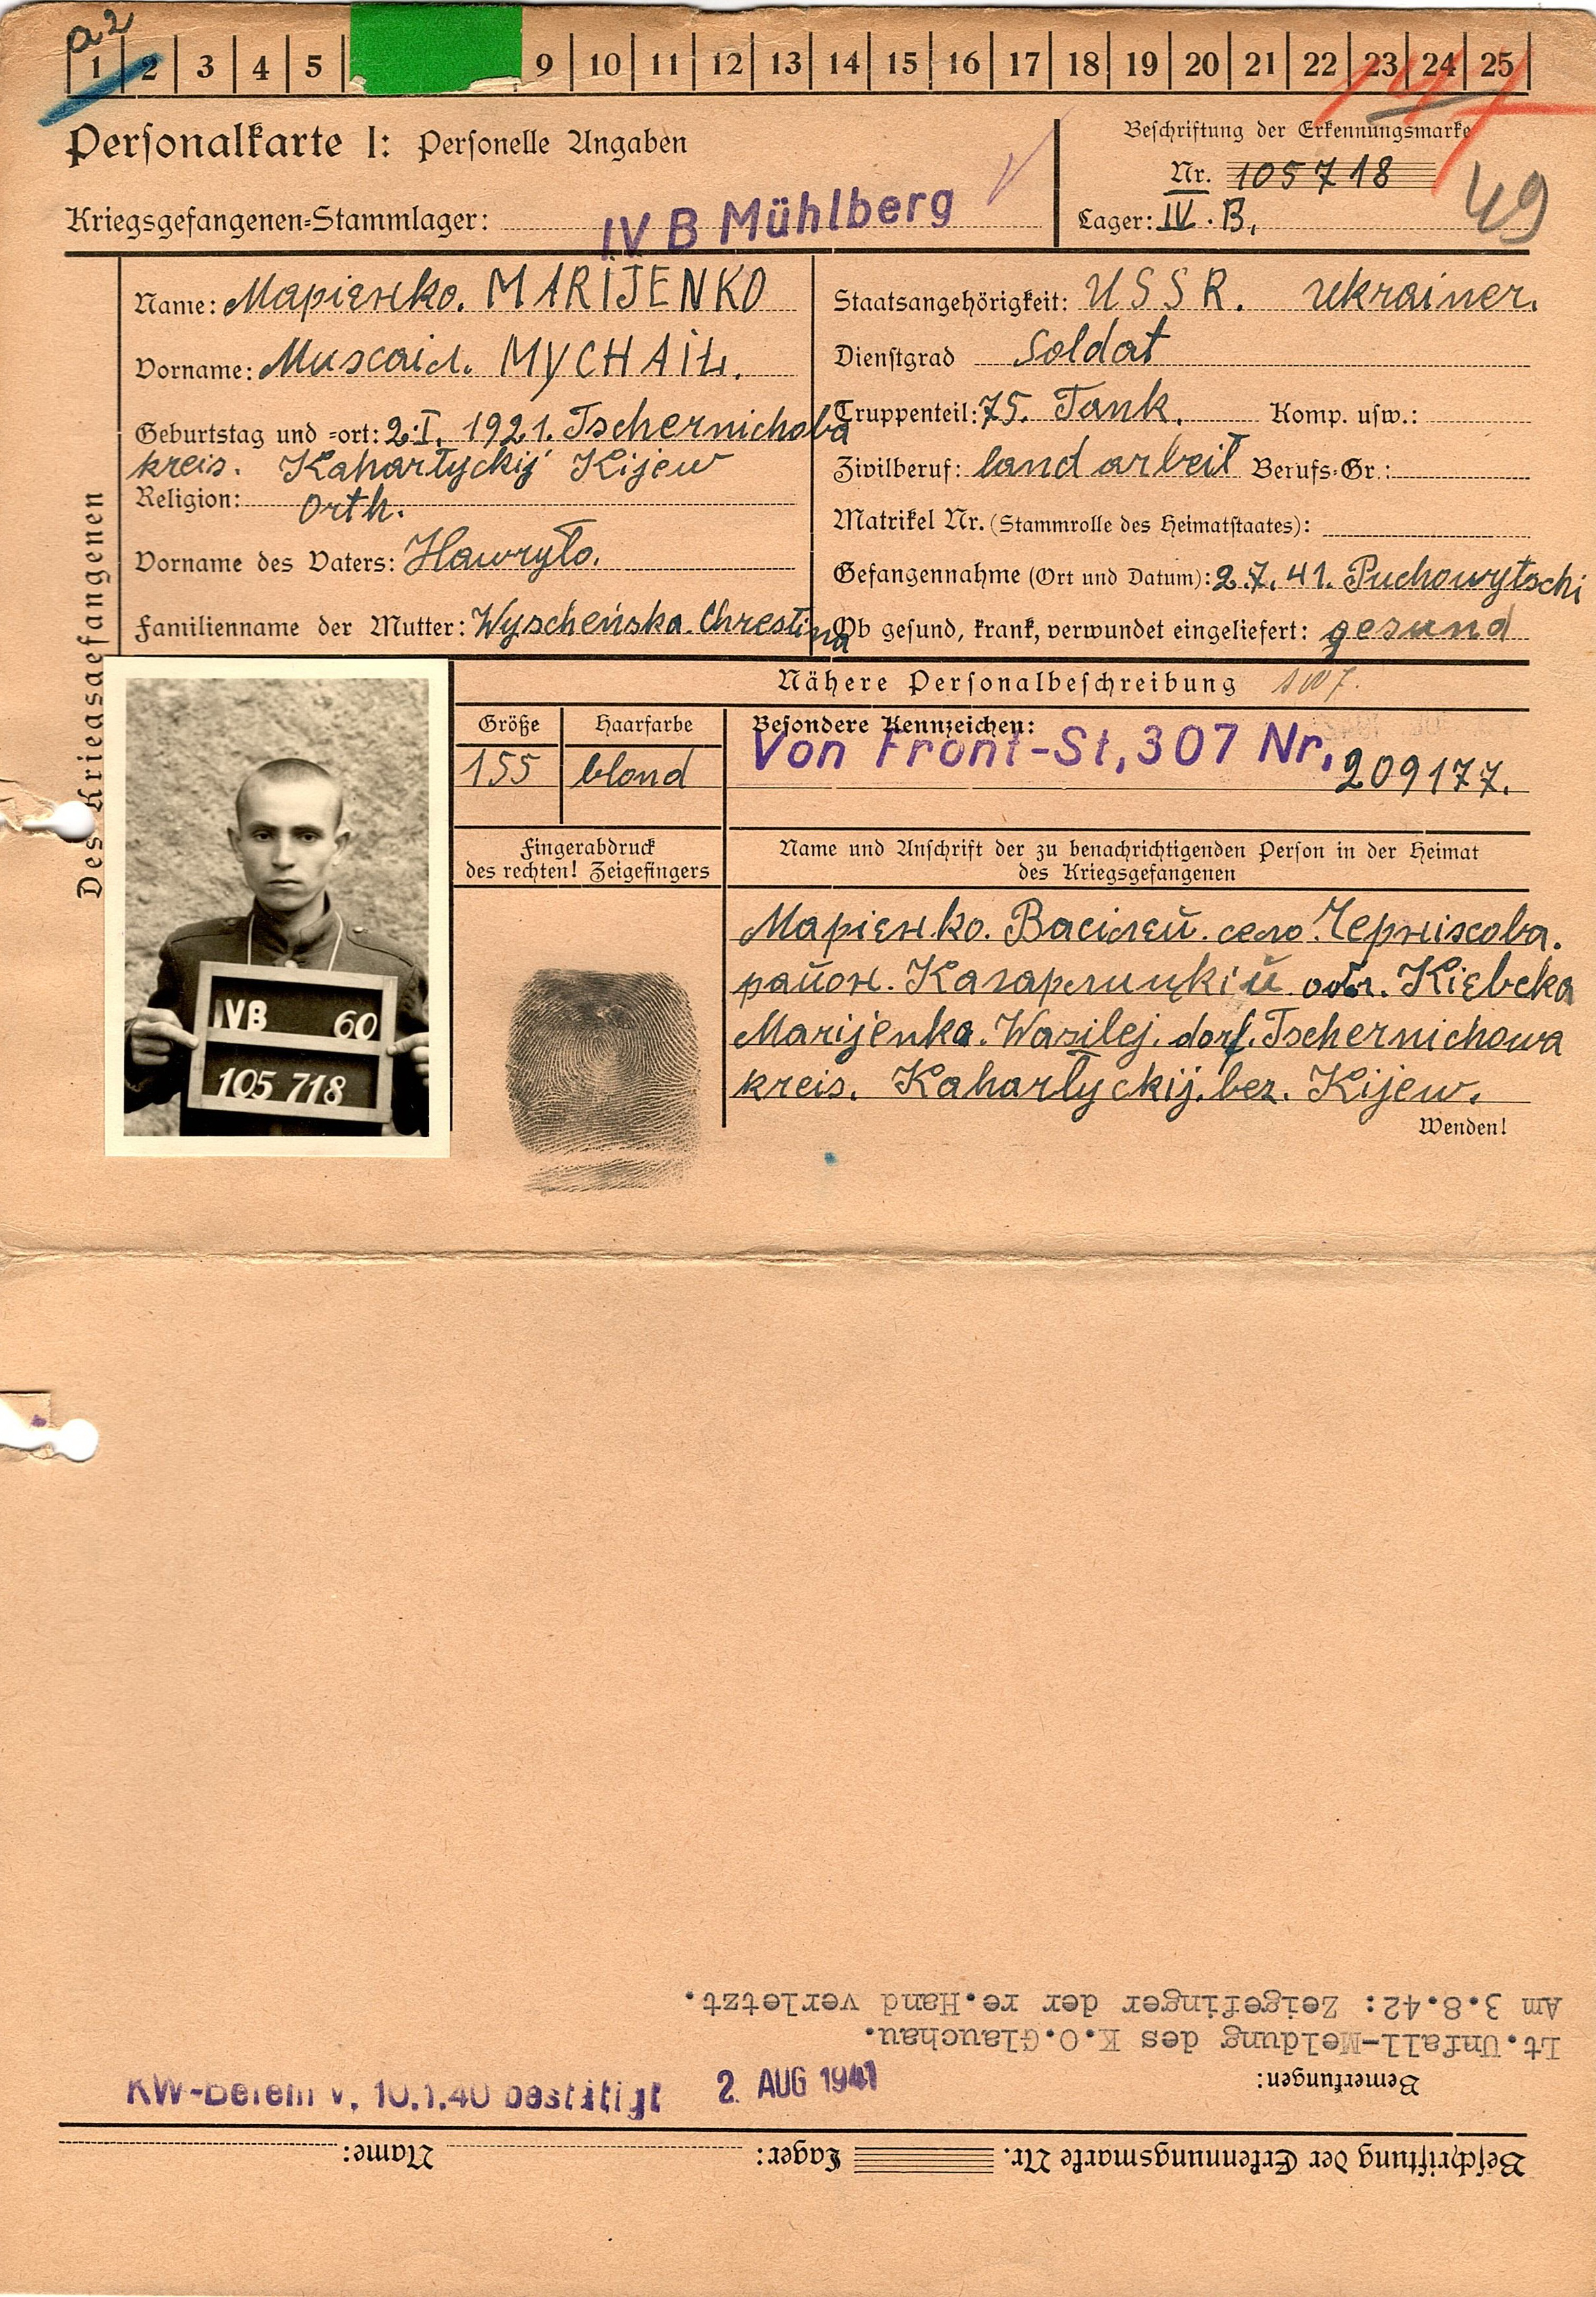 a2
1 2 3 4 5 9 10 11 12 13 14 15 16 17 18 19 20 21 22 23 24 25
Personalkarte I: Personelle Angaben
Beschriftung der Erkennungsmarke
Nr. 105718
Kriegsgefangenen-Stammlager: IV B Mühlberg
Lager: IV. B.
49
Des Kriegsgefangenen
Name: Марієнко. MARIJENKO
Vorname: Михаіл. MYCHAIŁ.
Geburtstag und -ort: 2.I. 1921. Tschernichoba
kreis. Kahartyckij Kijew
Religion: Orth.
Vorname des Vaters: Hawryło.
Familienname der Mutter: Wyscheńska. Chrestina
Staatsangehörigkeit: USSR. Ukrainer.
Dienstgrad Soldat
Truppenteil: 75. Tank. Komp. usw.:
Zivilberuf: land arbeit Berufs-Gr.:
Matrikel Nr. (Stammrolle des Heimatstaates):
Gefangennahme (Ort und Datum): 2.7.41. Puchowytschi
Ob gesund, krank, verwundet eingeliefert: gesund
Nähere Personalbeschreibung
Größe Haarfarbe Besondere Kennzeichen:
155 blond Von Front-St, 307 Nr. 209177.
Fingerabdruck
des rechten! Zeigefingers
Name und Anschrift der zu benachrichtigenden Person in der Heimat
des Kriegsgefangenen
Марієнко. Васілей. село. Черніхова.
район. Кагарлицкій обл. Кієвска
Marijenko. Wasilej. dorf. Tschernichowa
kreis. Kahartyckij. bez. Kijew.
Wenden!
IVB 60
105 718
Am 3.8.42: Zeigefinger der re.Hand verletzt.
Lt.Unfall-Meldung des K.O.Glauchau.
Bemerkungen:
KW-Befehl v. 10.1.40 bestätigt 2. AUG 1941
Beschriftung der Erkennungsmarke Nr. Lager: Name: